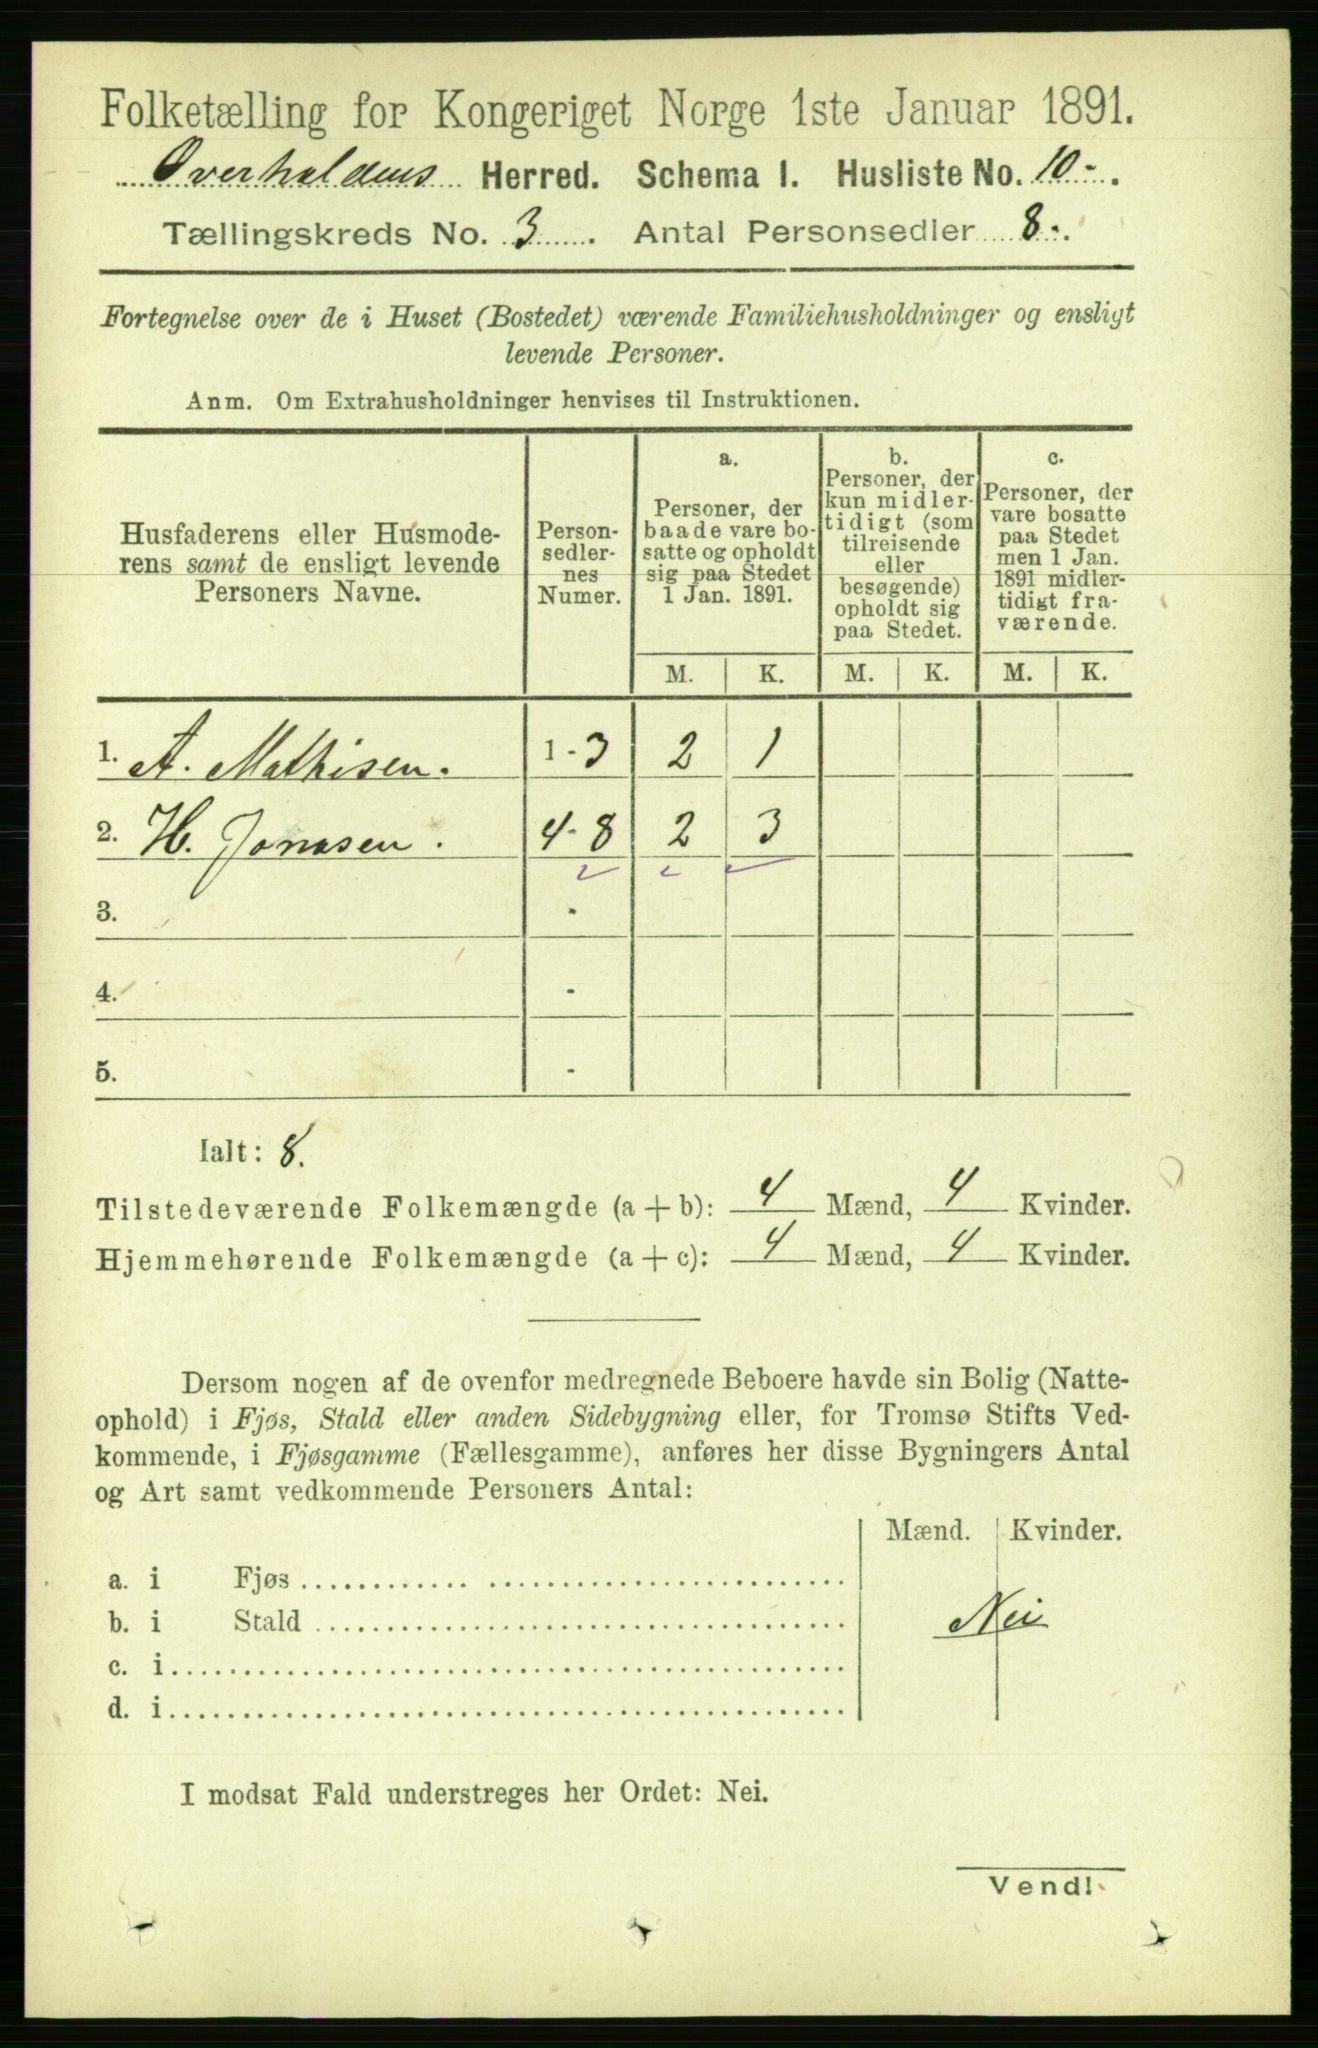 Folketælling for Kongeriget Norge 1ste Januar 1891.
Overhaldens Herred. Schema I. Husliste No. 10-.
Tællingskreds No. 3. Antal Personsedler 8-.
Fortegnelse over de i Huset (Bostedet) værende Familiehusholdninger og ensligt
levende Personer.
Anm. Om Extrahusholdninger henvises til Instruktionen.
Husfaderens eller Husmode-
rens samt de ensligt levende
Personers Navne.
Person-
sedler-
nes
Numer.
a.
Personer, der
baade vare bo-
satte og opholdt
sig paa Stedet
1 Jan. 1891.
b.
Personer, der
kun midler-
tidigt (som
tilreisende
eller
besøgende)
opholdt sig
paa Stedet.
c.
Personer, der
vare bosatte
paa Stedet
men 1 Jan.
1891 midler-
tidigt fra-
værende.
M. K. M. K. M. K.
1. A. Mathisen. 1 - 3 2 1
2. H. Jonasen. 4 - 8 2 3
3. -
4. -
5. -
Ialt: 8.
Tilstedeværende Folkemængde (a + b): 4 Mænd, 4 Kvinder.
Hjemmehørende Folkemængde (a + c): 4 Mænd, 4 Kvinder.
Dersom nogen af de ovenfor medregnede Beboere havde sin Bolig (Natte-
ophold) i Fjøs, Stald eller anden Sidebygning eller, for Tromsø Stifts Ved-
kommende, i Fjøsgamme (Fællesgamme), anføres her disse Bygningers Antal
og Art samt vedkommende Personers Antal:
Mænd. Kvinder.
a. i Fjøs
b. i Stald Nei
c. i
d. i
I modsat Fald understreges her Ordet: Nei.
Vend!